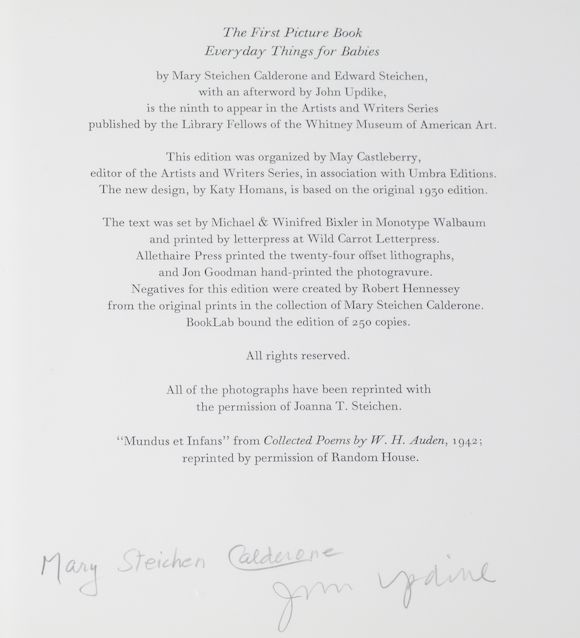 The First Picture Book
Everyday Things for Babies
by Mary Steichen Calderone and Edward Steichen,
with an afterword by John Updike,
is the ninth to appear in the Artists and Writers Series
published by the Library Fellows of the Whitney Museum of American Art.
This edition was organized by May Castleberry,
editor of the Artists and Writers Series, in association with Umbra Editions.
The new design, by Katy Homans, is based on the original 1930 edition.
The text was set by Michael & Winifred Bixler in Monotype Walbaum
and printed by letterpress at Wild Carrot Letterpress.
Allethaire Press printed the twenty-four offset lithographs,
and Jon Goodman hand-printed the photogravure.
Negatives for this edition were created by Robert Hennessey
from the original prints in the collection of Mary Steichen Calderone.
BookLab bound the edition of 250 copies.
All rights reserved.
All of the photographs have been reprinted with
the permission of Joanna T. Steichen.
“Mundus et Infans” from Collected Poems by W. H. Auden, 1942;
reprinted by permission of Random House.
Mary Steichen Calderone
John Updike